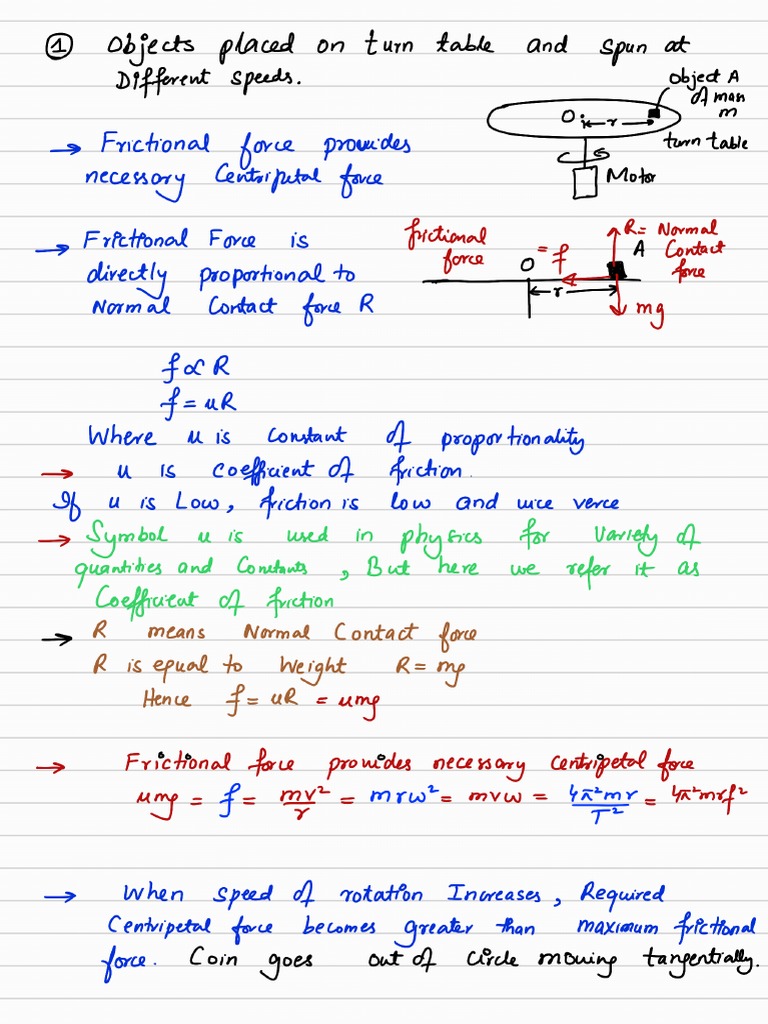 ① Objects placed on turn table and spun at
Different speeds.
object A
of mass
m
O
r
turn table
Motor
→ Frictional force provides
necessary Centripetal force
→ Frictional Force is
directly proportional to
Normal Contact force R
frictional
force = f
R = Normal
Contact
force
A
O
r
mg
f ∝ R
f = uR
Where u is constant of proportionality
→ u is coefficient of friction.
If u is Low, friction is low and vice verce
→ Symbol u is used in physics for variety of
quantities and Constants, But here we refer it as
Coefficient of friction
→ R means Normal Contact force
R is equal to Weight R = mg
Hence f = uR = umg
→ Frictional force provides necessary centripetal force
umg = f = mv²/r = mrω² = mvω = 4π²mr/T² = 4π²mrf²
→ When speed of rotation Increases, Required
Centripetal force becomes greater than maximum frictional
force. Coin goes out of circle moving tangentially.